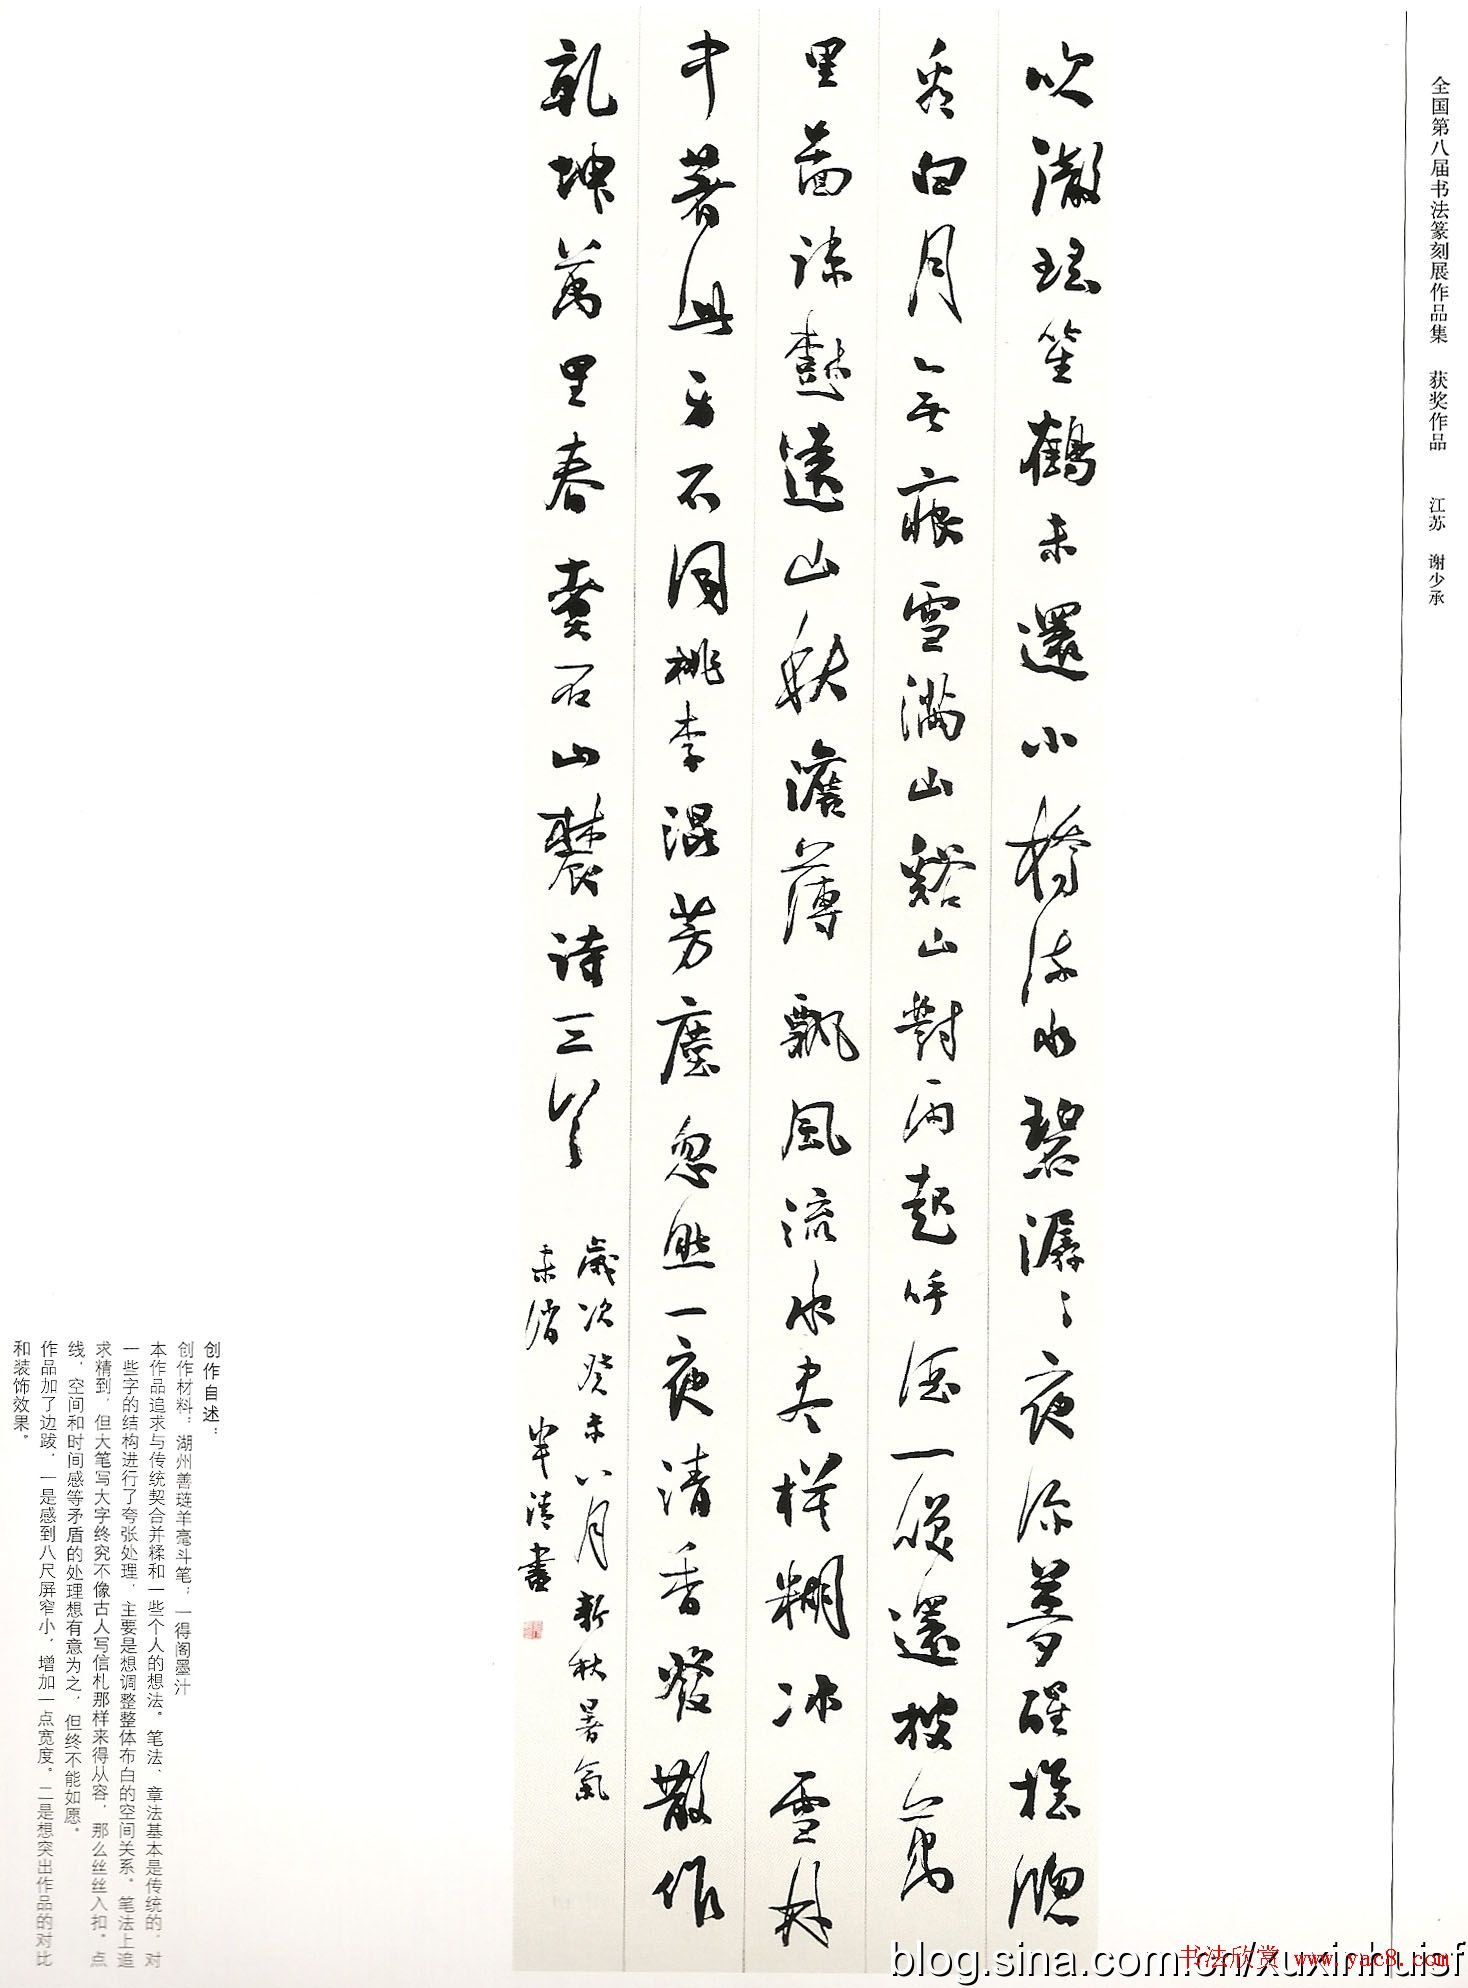 全国第八届书法篆刻展作品集 获奖作品 江苏 谢少承
吹澈瑶笙鶴未還小橋流水碧潺〻夜深夢醒推牕
看白月無痕雪滿山谿山對雨起呼酒一夜還披萬
里蓑疎鼓遠山秋澹薄飄風流水春模糊冰雪林
中著此身不同桃李混芳塵忽然一夜清香發散作
乾坤萬里春 煮石山農詩三首
歲次癸未八月新秋暑氣
未消 半清書
创作自述：
创作材料：湖州善琏羊毫斗笔；一得阁墨汁
本作品追求与传统契合并糅和一些个人的想法。笔法、章法基本是传统的，对
一些字的结构进行了夸张处理，主要是想调整整体布白的空间关系。笔法上追
求精到，但大笔写大字终究不像古人写信札那样来得从容，那么丝丝入扣。点
线，空间和时间感等矛盾的处理想有意为之，但终不能如愿。
作品加了边跋，一是感到八尺屏窄小，增加一点宽度。二是想突出作品的对比
和装饰效果。
blog.sina.com.cn/xuxinhuisf
书法欣赏 www.yac8.com